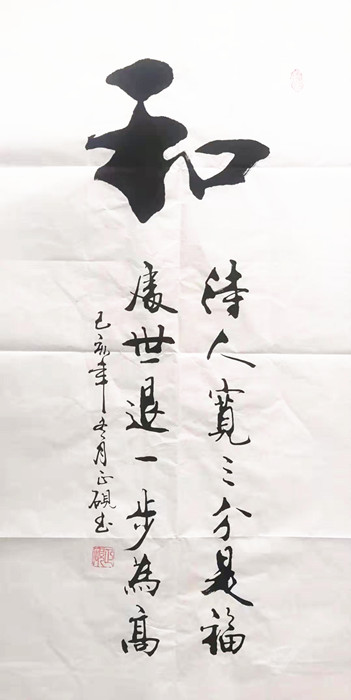 和
待人寬三分是福
處世退一步為高
己亥年冬月正硯書